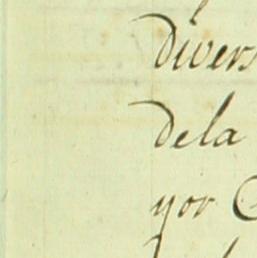 divers
dela
yor